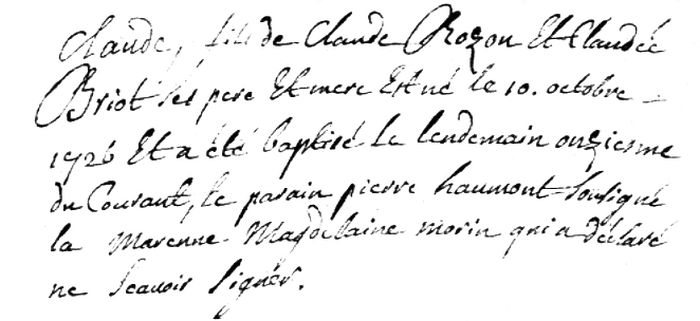 Claude, fils de Claude Rozon Et Claudée
Briot ses pere Et mere Est né le 10. octobre -
1726 Et a été baptisé le lendemain onziesme
du Courant, le parain pierre haumont soussigné
la Marenne Magdelaine morin qui a déclaré
ne scauoir signer.